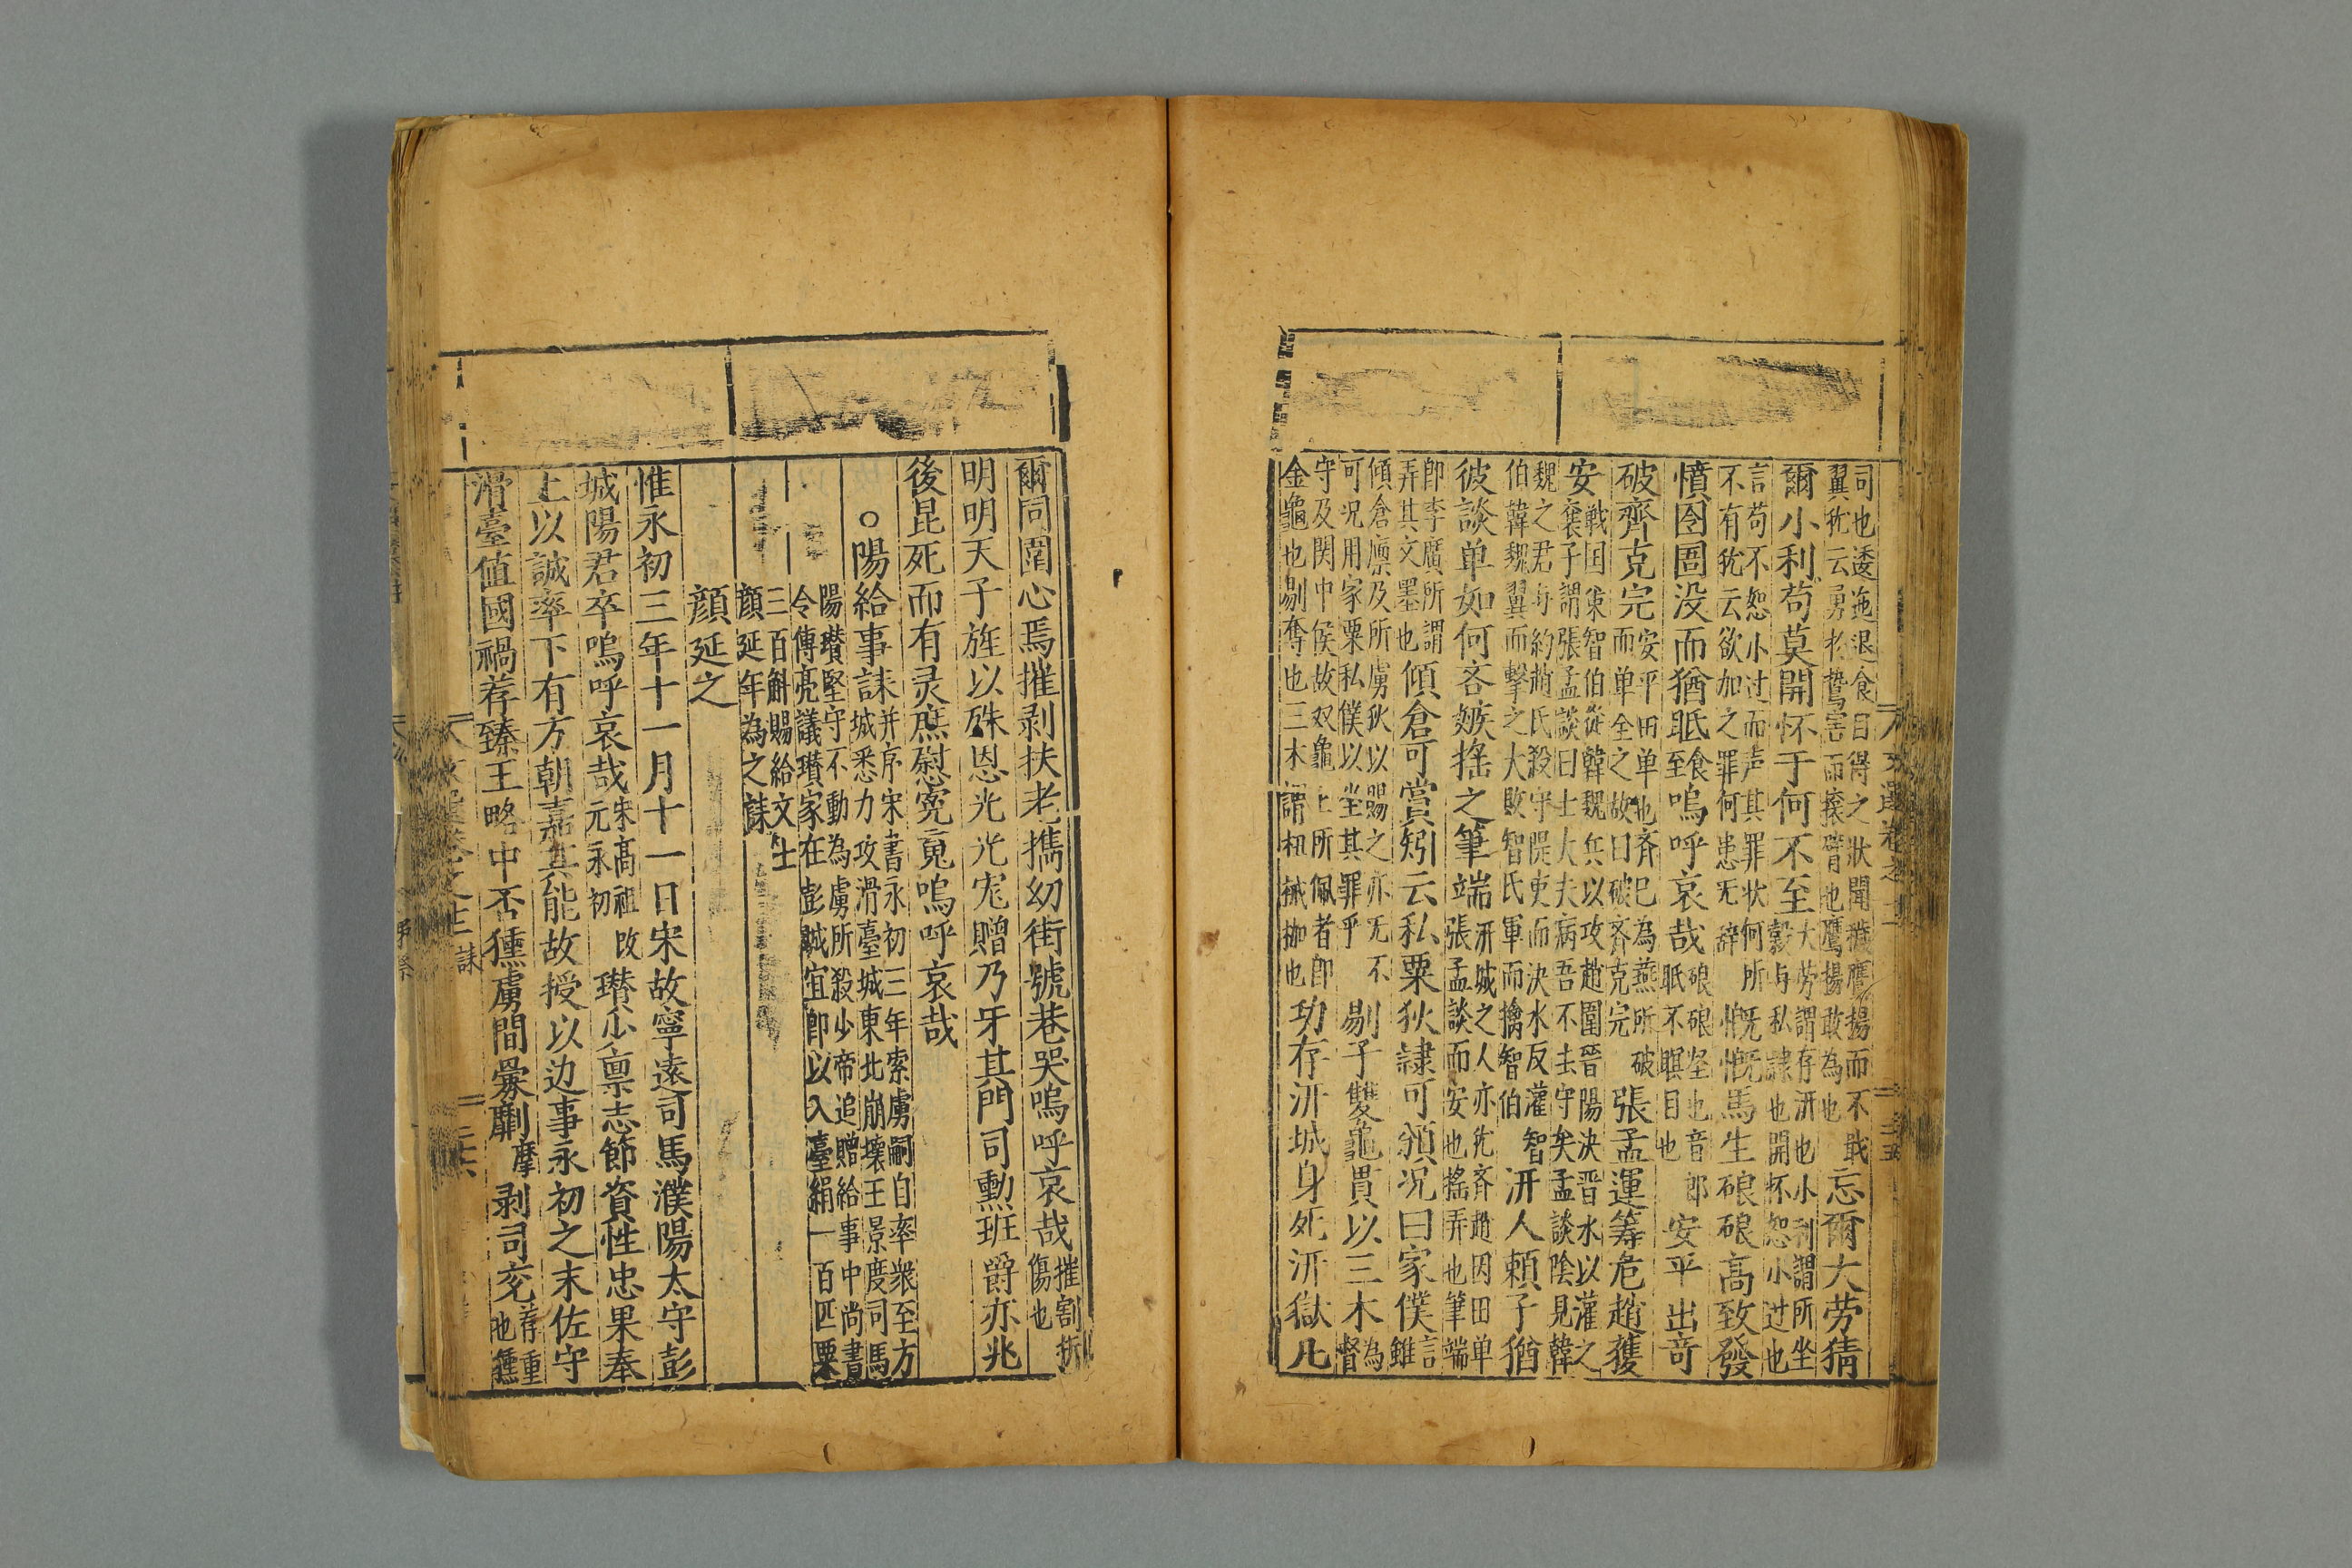 文選卷之十二
三五
司也逶迤退食自得之狀聞穢鷹揚而不敢
翼犹云勇於鷙害而攘臂也鷹揚敢為也
忘爾大劳猜
爾小利苟莫開怀于何不至
大劳謂存汧也小利謂所坐
穀与私隷也開怀恕小过也
言苟不恕小过而声其罪状何所
不有犹云欲加之罪何患无辞
慨慨馬生硠硠高致發
憤囹圄没而猶眡
食至
嗚呼哀哉
硠硠坚也音郎
眡不瞑目也
安平出竒
破齊克完
安平田单也齐已為燕所破
而单全之故曰破齐克完
張孟運筹危趙獲
安
戰国策智伯從韓魏兵以攻趙圍晉陽決晋水以灌之
襄子謂張孟談曰士大夫病吾不去守矣孟談陰見韓
魏之君与約趙氏殺守隄吏而決水反灌智
伯韓魏翼而擊之大敗智氏軍而擒智伯
汧人頼子猶
彼談单如何吝嫉揺之筆端
汧城之人亦犹齐趙因田单
張孟談而安也揺弄也筆端
即李廣所謂
弄其文墨也
傾倉可賞矧云私粟狄隷可頒况曰家僕
言
雖
傾倉廪及所虏狄以賜之亦无不
可况用家粟私僕以坐其罪乎
剔子雙龜貫以三木
為
督
守及関中侯故双龜上所佩者即
金龜也剔奪也三木謂杻械枷也
功存汧城身死汧獄凡
爾同圍心焉摧剥扶老攜幼街號巷哭嗚呼哀哉
摧割折
傷也
明明天子旌以殊恩光光寵贈乃牙其門司勲班爵亦兆
後昆死而有灵庶慰寃䰟嗚呼哀哉
○陽給事誄
并序宋書永初三年索虜嗣自率衆至方
城悉力攻滑臺城東北崩壊王景度司馬
陽瓉堅守不動為虜所殺少帝追贈給事中尚書
令傅亮議瓉家在彭城宜即以入臺絹一百匹粟
三百斛賜給文士
顔延年為之誄
顔延之
惟永初三年十一月十一日宋故寧遠司馬濮陽太守彭
城陽君卒嗚呼哀哉
宋高祖改
元永初
瓉少禀志節資性忠果奉
上以誠率下有方朝嘉其能故授以边事永初之末佐守
滑臺值國禍荐臻王略中否獯虜間釁劘
摩
剥司兖
荐重
也獯
誄
三六